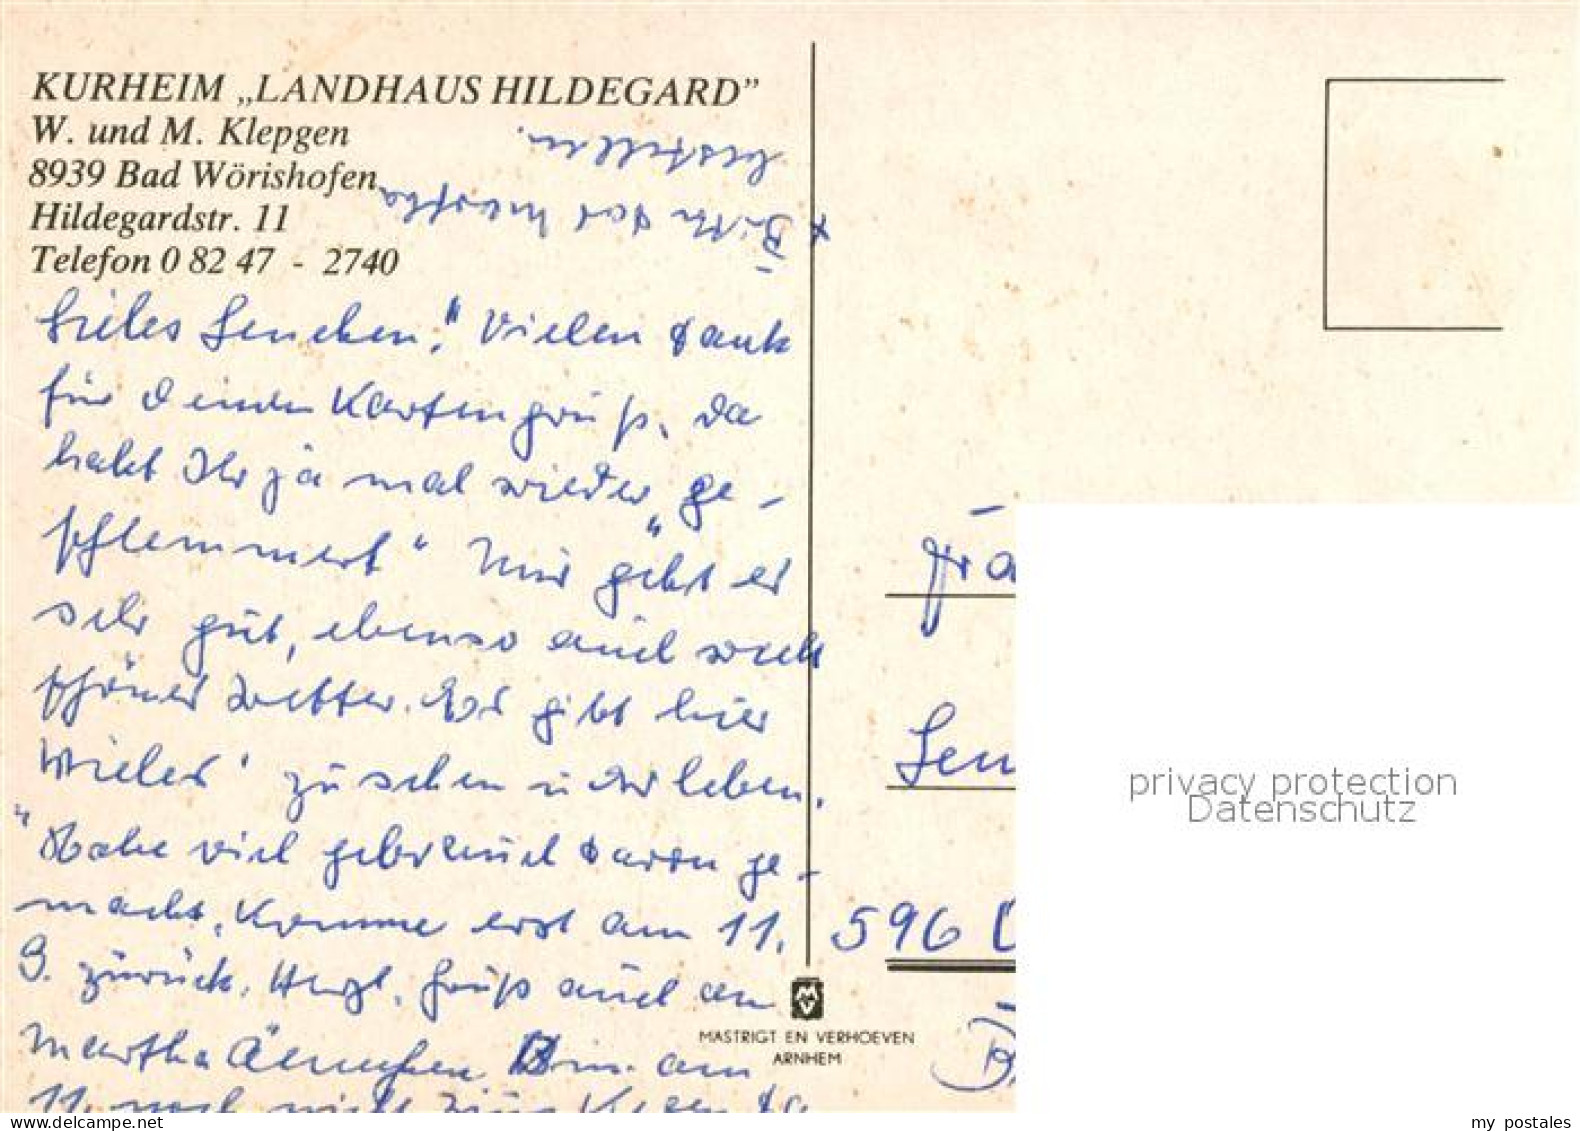 KURHEIM „LANDHAUS HILDEGARD”
W. und M. Klepgen
8939 Bad Wörishofen
Hildegardstr. 11
Telefon 0 82 47 - 2740
+ Bitte das Martha
bestellen.
Liebes Lenchen! Vielen Dank
für Deinen Kartengruß. Da
habt Ihr ja mal wieder „ge-
schlemmert“ Mir geht es
sehr gut, ebenso auch
schönes Wetter. Es gibt hier
Vieles zu sehen u. erleben.
Habe viel gebrauch davon ge-
macht. Komme erst am 11.
9. zurück. Herzl. Gruß auch an
Martha Bin am
11. noch nicht zum
Fra
Len
596
MASTRIGT EN VERHOEVEN
ARNHEM
privacy protection
Datenschutz
my postales